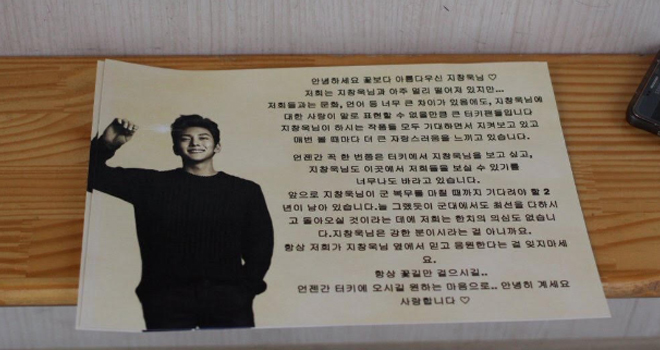 안녕하세요 꽃보다 아름다우신 지창욱님 ♡
저희는 지창욱님과 아주 멀리 떨어져 있지만...
저희들과는 문화, 언어 등 너무 큰 차이가 있음에도, 지창욱님에
대한 사랑이 말로 표현할 수 없을만큼 큰 터키팬들입니다
지창욱님이 하시는 작품들 모두 기대하면서 지켜보고 있고
매번 볼 때마다 더 큰 자랑스러움을 느끼고 있습니다.
언젠간 꼭 한 번쯤은 터키에서 지창욱님을 보고 싶고,
지창욱님도 이곳에서 저희들을 보실 수 있기를
너무나도 바라고 있습니다.
앞으로 지창욱님이 군 복무를 마칠 때까지 기다려야 할 2
년이 남아 있습니다.늘 그랬듯이 군대에서도 최선을 다하시
고 돌아오실 것이라는 데에 저희는 한치의 의심도 없습니
다.지창욱님은 강한 분이시라는 걸 아니까요.
항상 저희가 지창욱님 옆에서 믿고 응원한다는 걸 잊지마세
요.
항상 꽃길만 걸으시길..
언젠간 터키에 오시길 원하는 마음으로.. 안녕히 계세요
사랑합니다 ♡